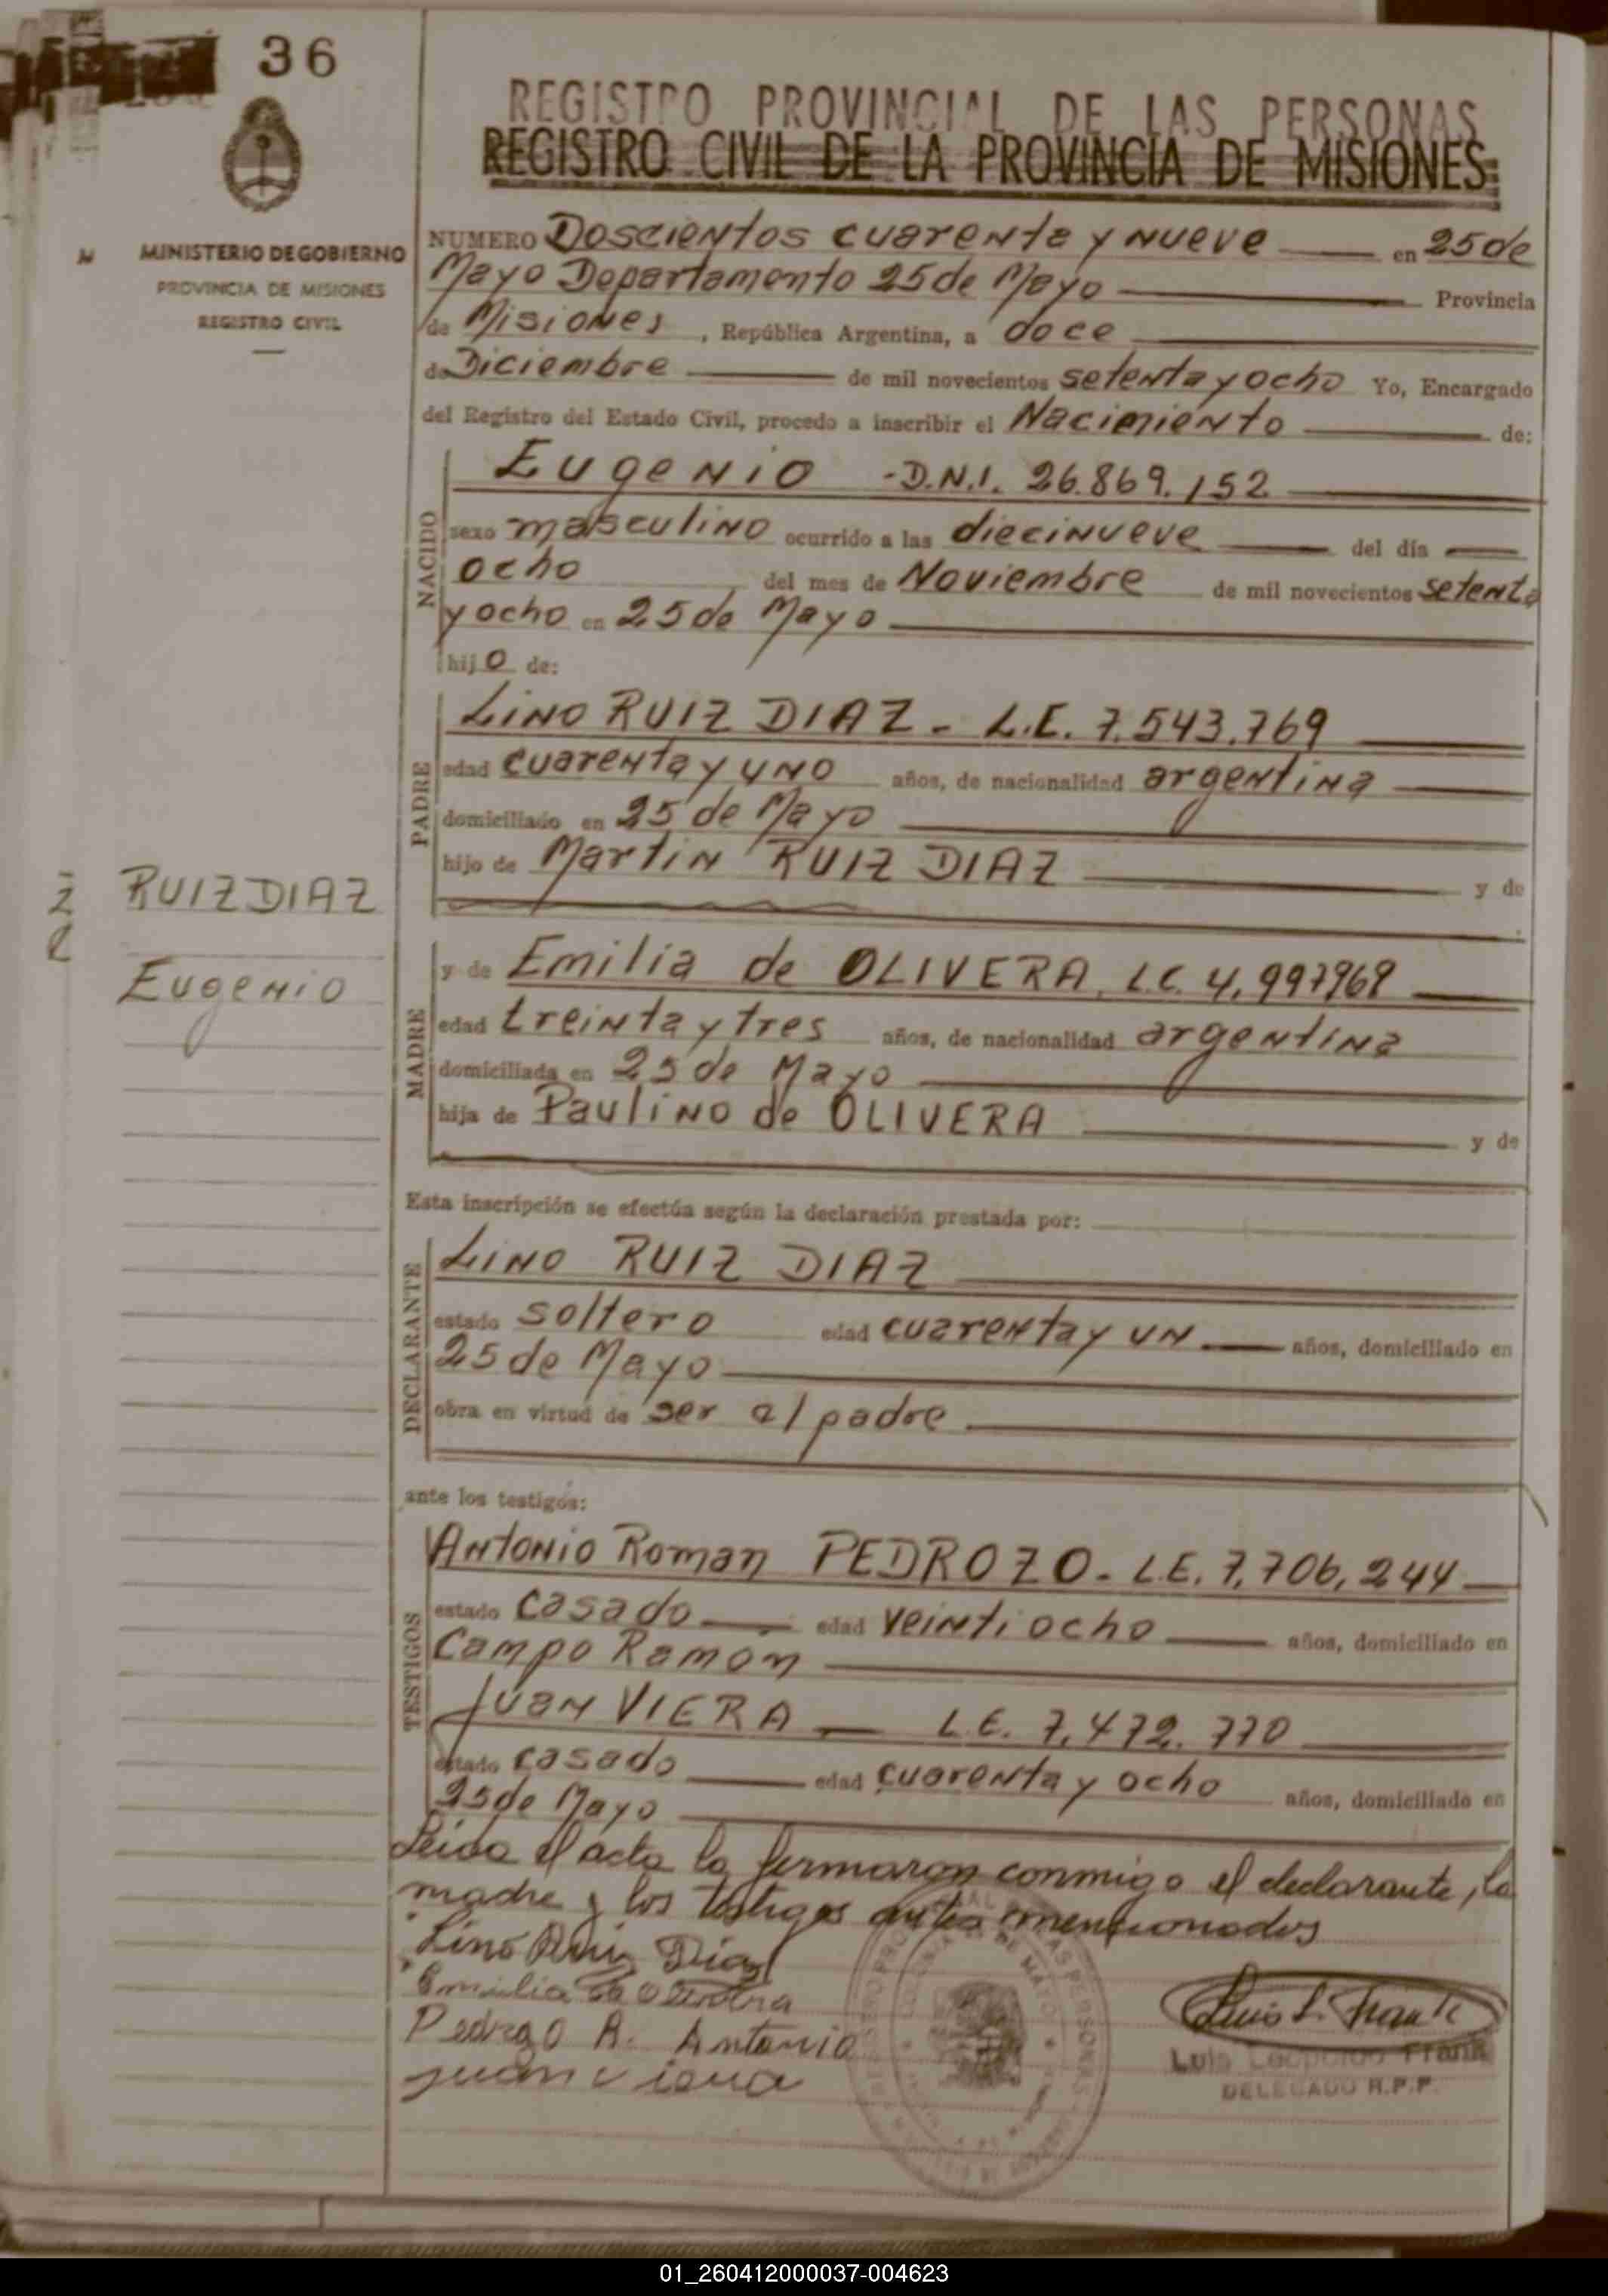 36
MINISTERIO DE GOBIERNO
PROVINCIA DE MISIONES
REGISTRO CIVIL
REGISTRO PROVINCIAL DE LAS PERSONAS
REGISTRO CIVIL DE LA PROVINCIA DE MISIONES
NUMERO Doscientos cuarenta y nueve en 25 de
Mayo Departamento 25 de Mayo Provincia
de Misiones, República Argentina, a doce
de Diciembre de mil novecientos setenta y ocho Yo, Encargado
del Registro del Estado Civil, procedo a inscribir el Nacimiento de:
NACIDO
Eugenio - D.N.I. 26.869.152
sexo masculino ocurrido a las diecinueve del día
ocho del mes de Noviembre de mil novecientos setenta
y ocho en 25 de Mayo
hijo de:
PADRE
Lino RUIZ DIAZ - L.E. 7.543.769
edad cuarenta y uno años, de nacionalidad argentina
domiciliado en 25 de Mayo
hijo de Martin RUIZ DIAZ y de
RUIZ DIAZ
Eugenio
MADRE
y de Emilia de OLIVERA, L.C. 4,997969
edad treinta y tres años, de nacionalidad argentina
domiciliada en 25 de Mayo
hija de Paulino de OLIVERA y de
Esta inscripción se efectúa según la declaración prestada por:
DECLARANTE
Lino RUIZ DIAZ
estado soltero edad cuarenta y un años, domiciliado en
25 de Mayo
obra en virtud de ser el padre
ante los testigos:
TESTIGOS
Antonio Roman PEDROZO - L.E. 7,706,244
estado casado edad veintiocho años, domiciliado en
Campo Ramón
Juan VIERA L.E. 7,472.770
estado casado edad cuarenta y ocho años, domiciliado en
25 de Mayo
Leida el acta la firmaron conmigo el declarante, la
madre y los testigos antes mencionados
Lino Ruiz Diaz
Emilia de Olivera
Pedrozo R. Antonio
Juan Viera
Luis L. Frank
Luis Leopoldo Frank
DELEGADO R.P.P.
01_260412000037-004623